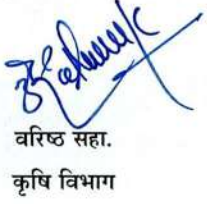 वरिष्ठ सहा.
कृषि विभाग